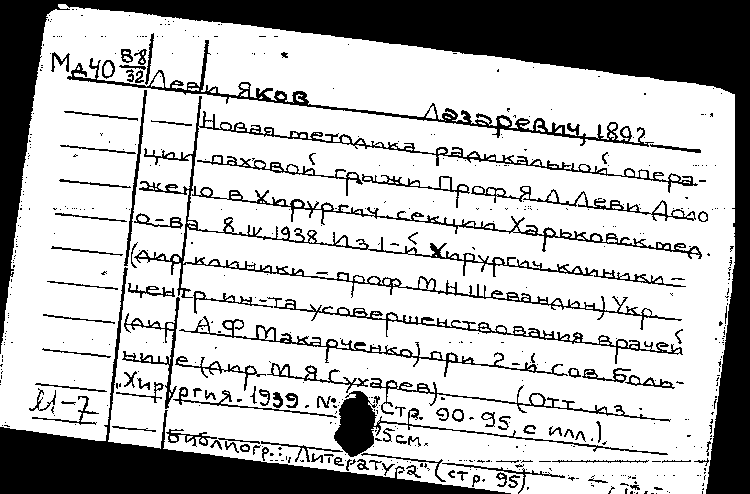 Мд40 В-8/32
Леви, Яков Лазаревич, 1892
Новая методика радикальной опера-
ции паховой грыжи Проф. Я.Л. Леви. Доло
жено в Хирургич. секции Харьковск. мед.
о-ва. 8.IV.1938. Из 1-й Хирургич. клиники =
(дир клиники = проф М.Н. Шевандин) Укр.
центр ин-та усовершенствования врачей
(дир А.Ф Макарченко) при 2-й Сов. Боль-
нице (дир. М.Я. Сухарев). (Отт. из:
"Хирургия. 1939. №: Стр. 90-95, с илл.).
М-7 25см.
Библиогр.: "Литература" (стр. 95).